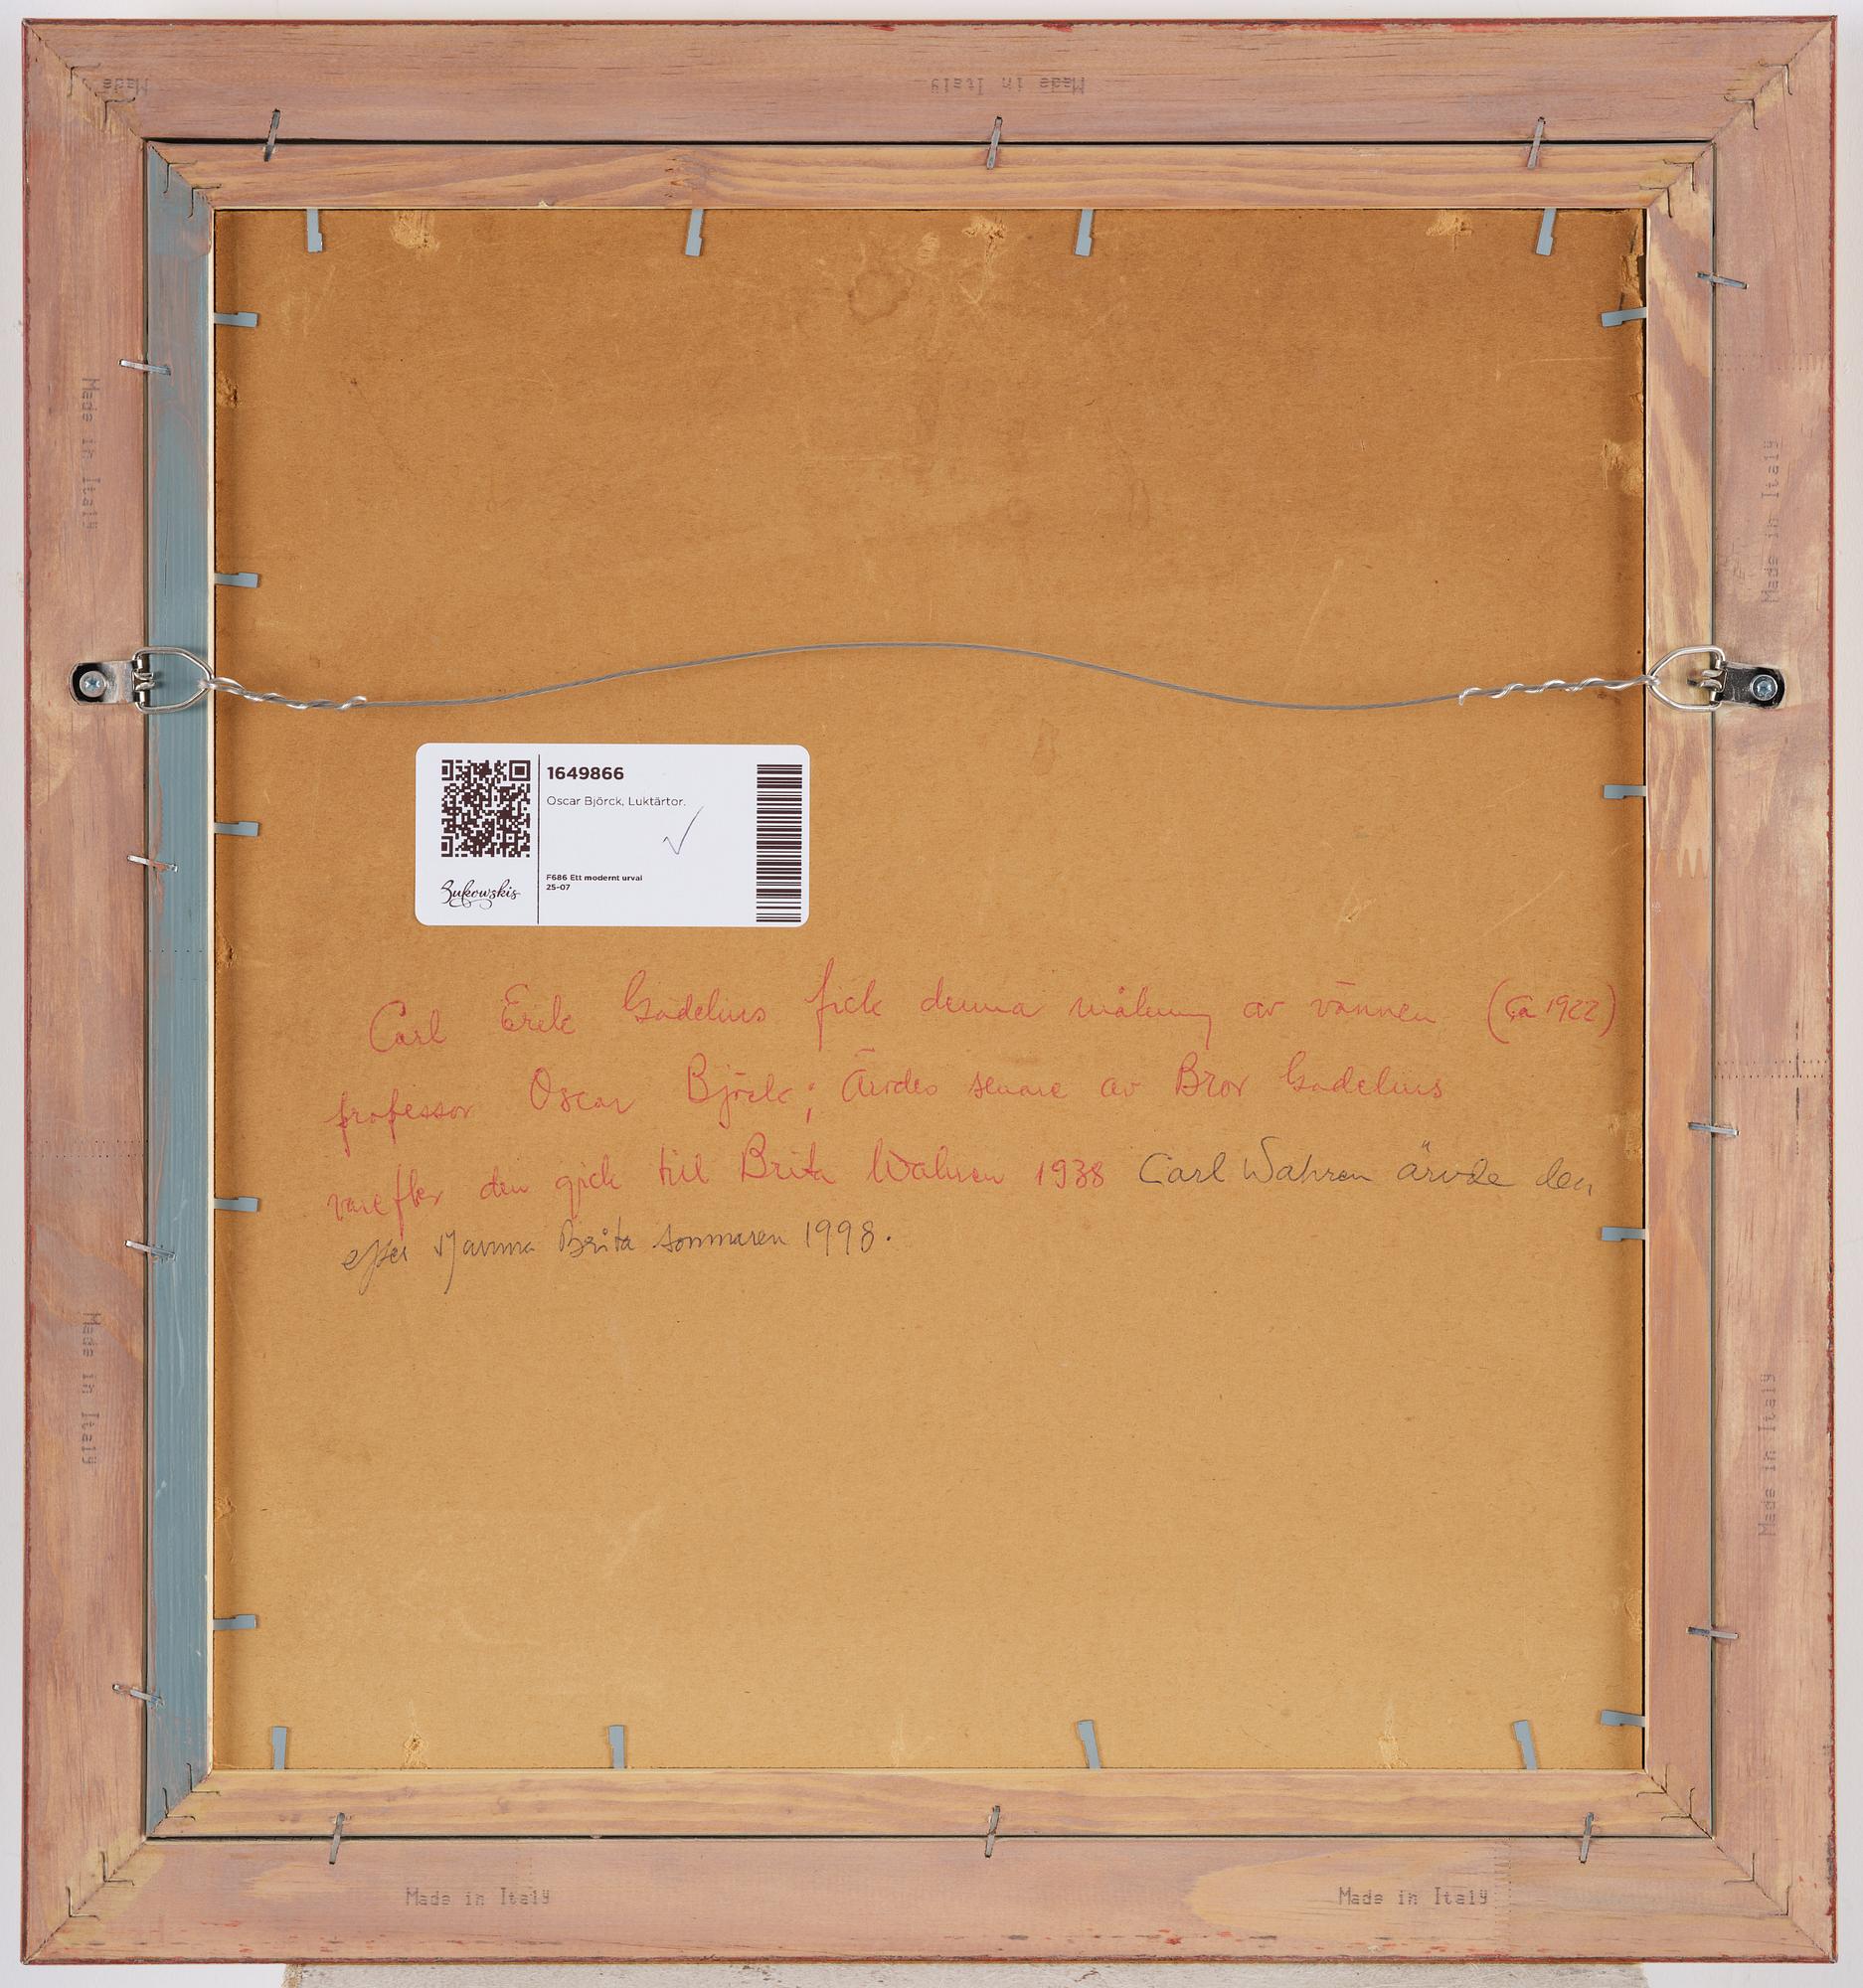 Made in Italy
Made
Made in Italy
Made in Italy
1649866
Oscar Björck, Luktärtor.
F686 Ett modernt urval
25-07
Bukowskis
Carl Erik Gadelius fick denna målning av vännen (ca 1922)
professor Oscar Björck; Ärvdes senare av Bror Gadelius
varefter den gick till Brita Wahren 1938 Carl Wahren ärvde den
efter Mamma Brita sommaren 1998.
Made in Italy
Made in Italy
Made in Italy
Made in Italy